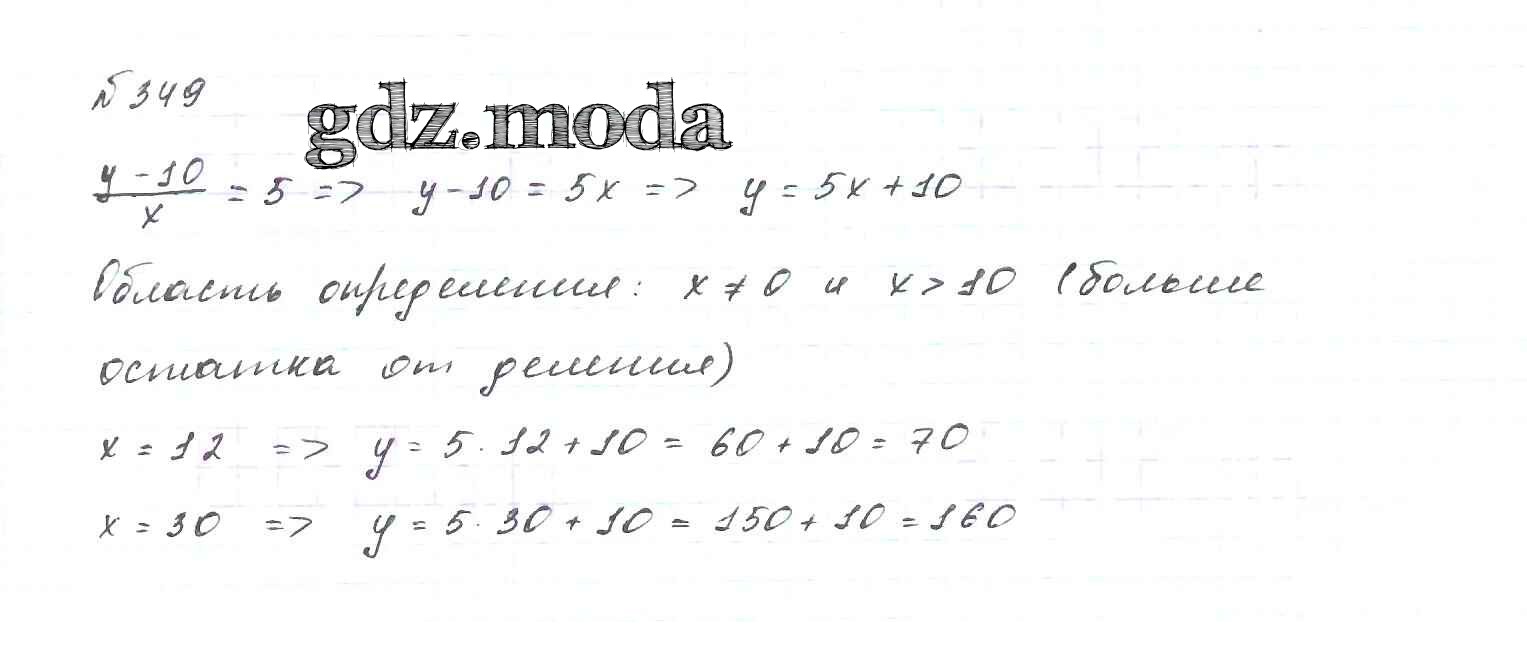 № 349
gdz.moda
(y - 10)/x = 5 => y - 10 = 5x => y = 5x + 10
Область определения: x ≠ 0 и x > 10 (больше
остатка от деления)
x = 12 => y = 5 · 12 + 10 = 60 + 10 = 70
x = 30 => y = 5 · 30 + 10 = 150 + 10 = 160